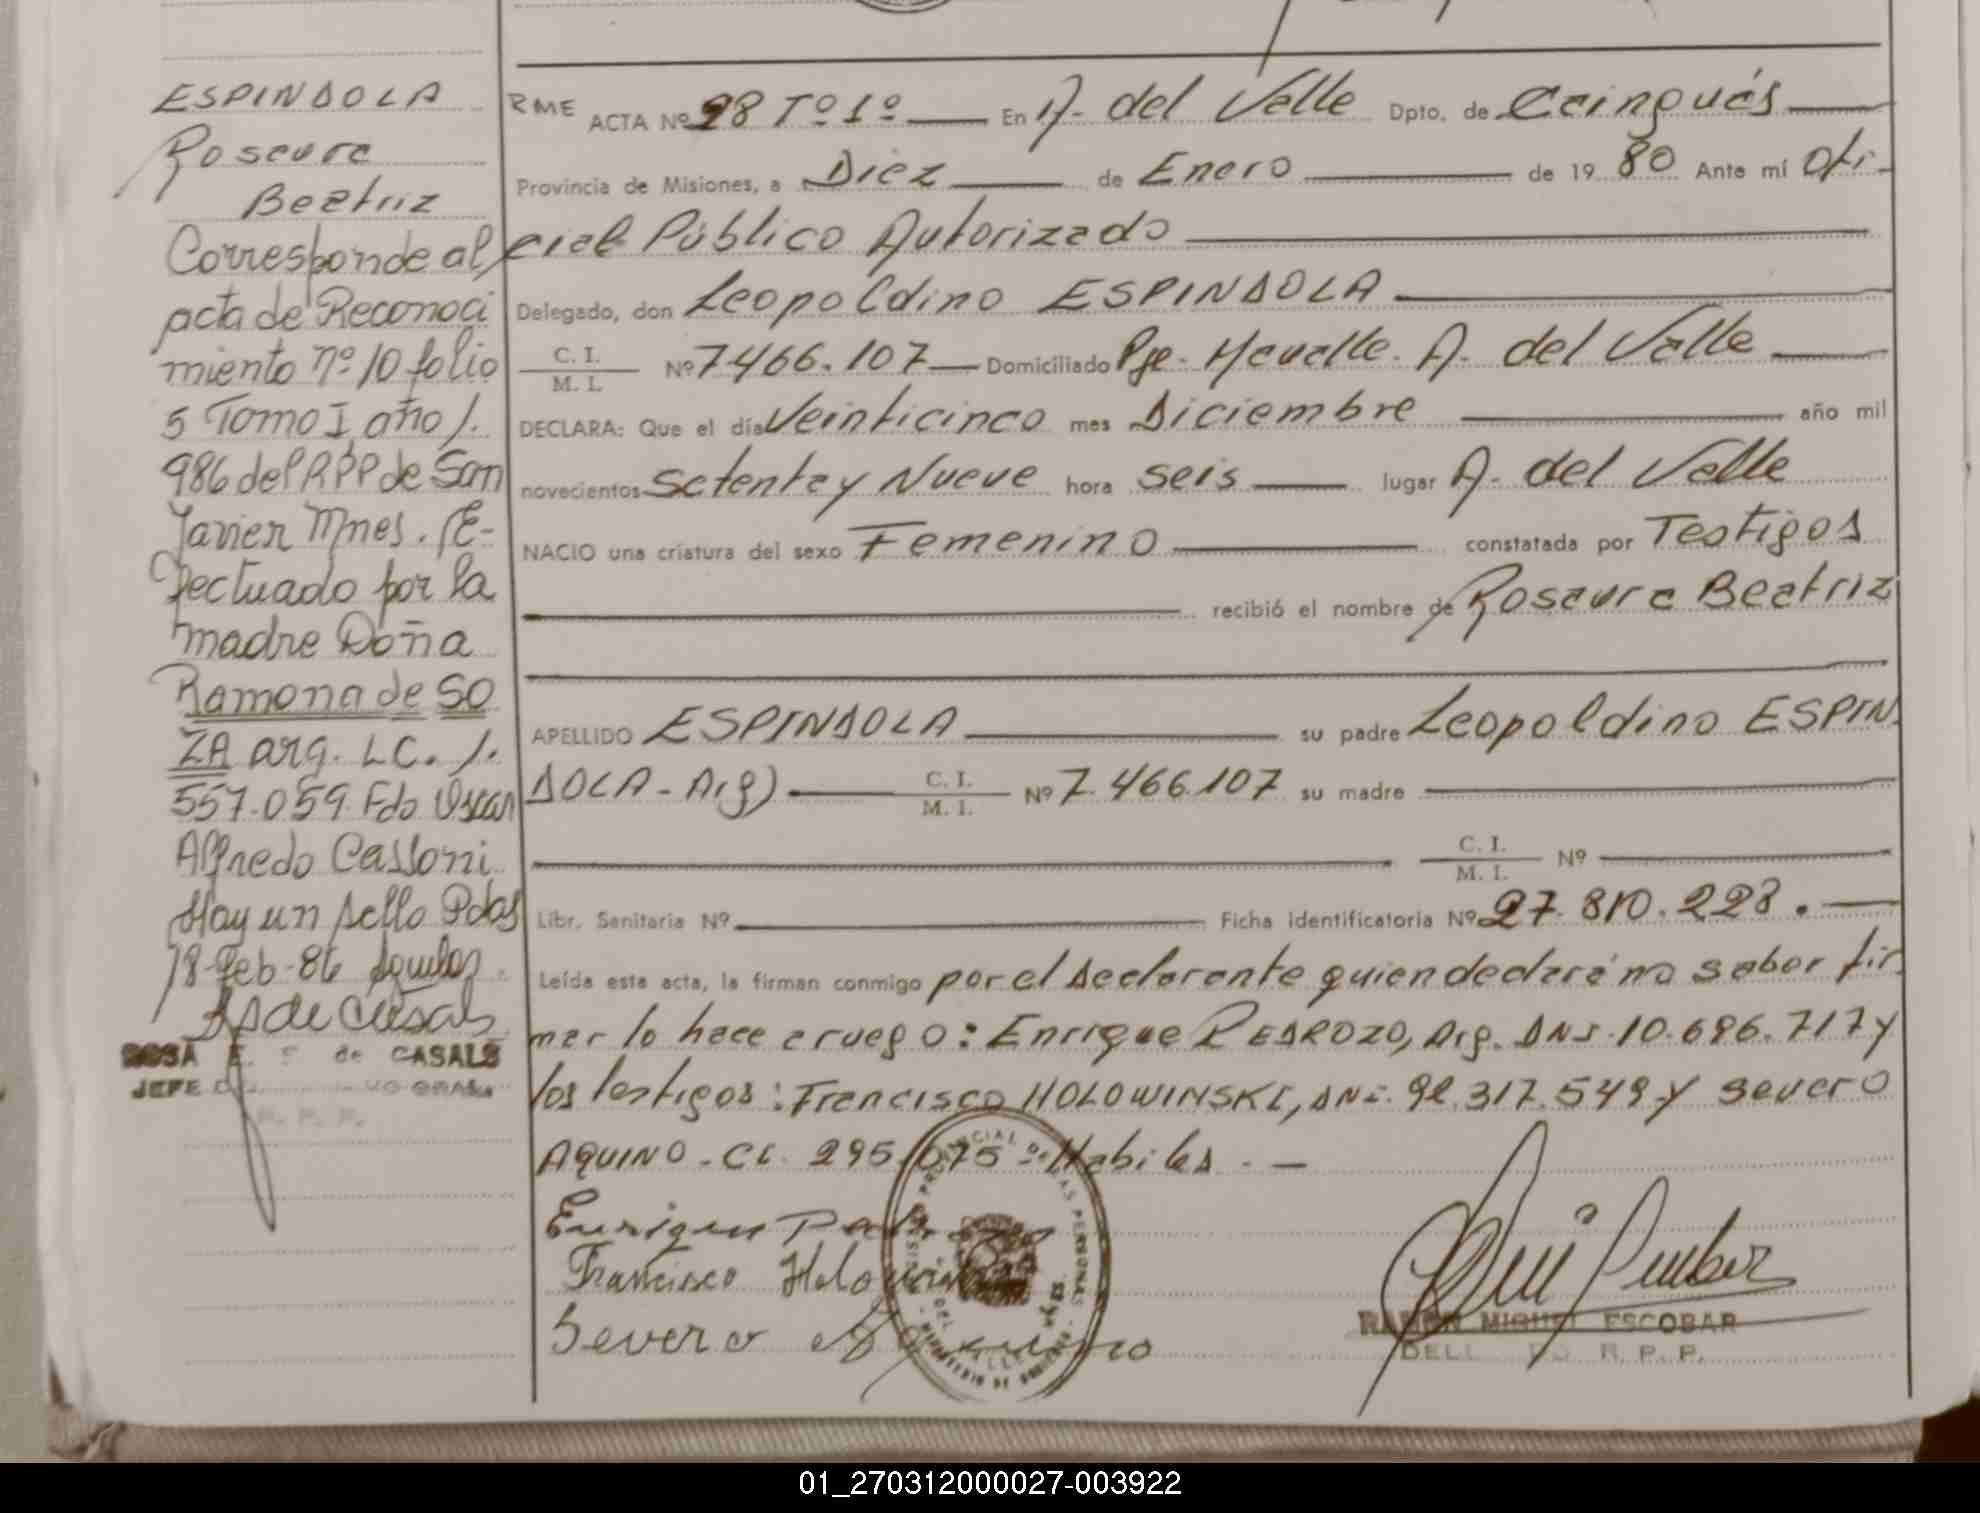 ESPINDOLA
Rosaura
Beatriz
Corresponde al
acta de Reconoci
miento nº 10 folio
5 Tomo I año 1.
986 del RPP de San
Javier Mnes. (E-
fectuado por la
madre Doña
Ramona de SO
ZA arg. LC. 1.
557.059 Fdo Oscar
Alfredo Cassoni
Hay un sello Pdas
18-Feb-86
de Casals
ROSA E. de CASALS
JEFE
R. P. P.
RME ACTA Nº 98 Tº 1º En A. del Valle Dpto. de Cainguás
Provincia de Misiones, a Diez de Enero de 19 80 Ante mí Ofi-
cial Público Autorizado
Delegado, don Leopoldino ESPINDOLA
C. I.
M. I. Nº 7466.107 Domiciliado Pje. A. del Valle
DECLARA: Que el día Veinticinco mes Diciembre año mil
novecientos Setenta y Nueve hora seis lugar A. del Valle
NACIO una criatura del sexo Femenino constatada por Testigos
recibió el nombre de Rosaura Beatriz
APELLIDO ESPINDOLA su padre Leopoldino ESPIN
DOLA - Arg) C. I.
M. I. Nº 7.466.107 su madre
C. I.
M. I. Nº
Libr. Sanitaria Nº Ficha identificatoria Nº 27.810.228.
Leída esta acta, la firman conmigo por el declarante quien declara no saber fir
mar lo hace a ruego: Enrique PEDROZO, Arg. DNI. 10.696.717 y
los testigos: Francisco HOLOWINSKI, DNI. 92.317.549 y Severo
AQUINO - CI. 295.075 - Habiles. -
Enrique
Francisco
Severo
RAMON MIGUEL ESCOBAR
R. P. P.
01_270312000027-003922